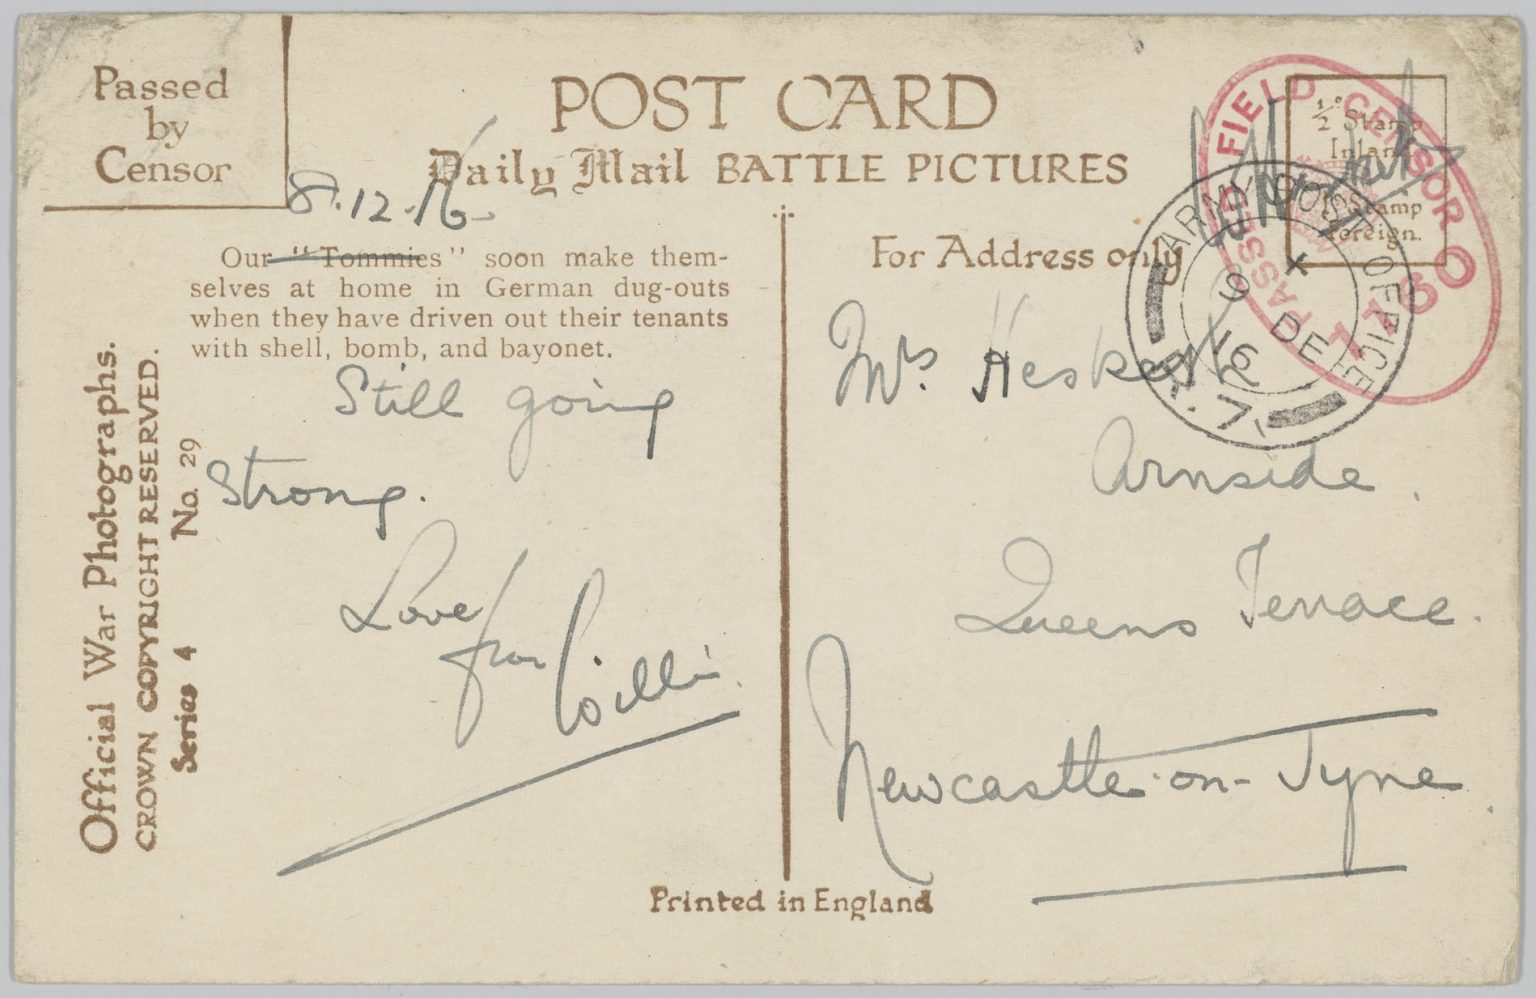 Passed
by
Censor
POST CARD
Daily Mail BATTLE PICTURES
8.12.16
Our "Tommies" soon make them-
selves at home in German dug-outs
when they have driven out their tenants
with shell, bomb, and bayonet.
Still going
Strong.
Love
from Willie.
Official War Photographs.
CROWN COPYRIGHT RESERVED.
Series 4 No. 29
½ᴰ Stamp
Inland
1ᴰ Stamp
Foreign.
PASSED FIELD CENSOR
ARMY POST OFFICE
9 DE
16
R.7.
For Address only
Mrs. Hesketh
Arnside.
Queens Terrace.
Newcastle-on-Tyne
Printed in England